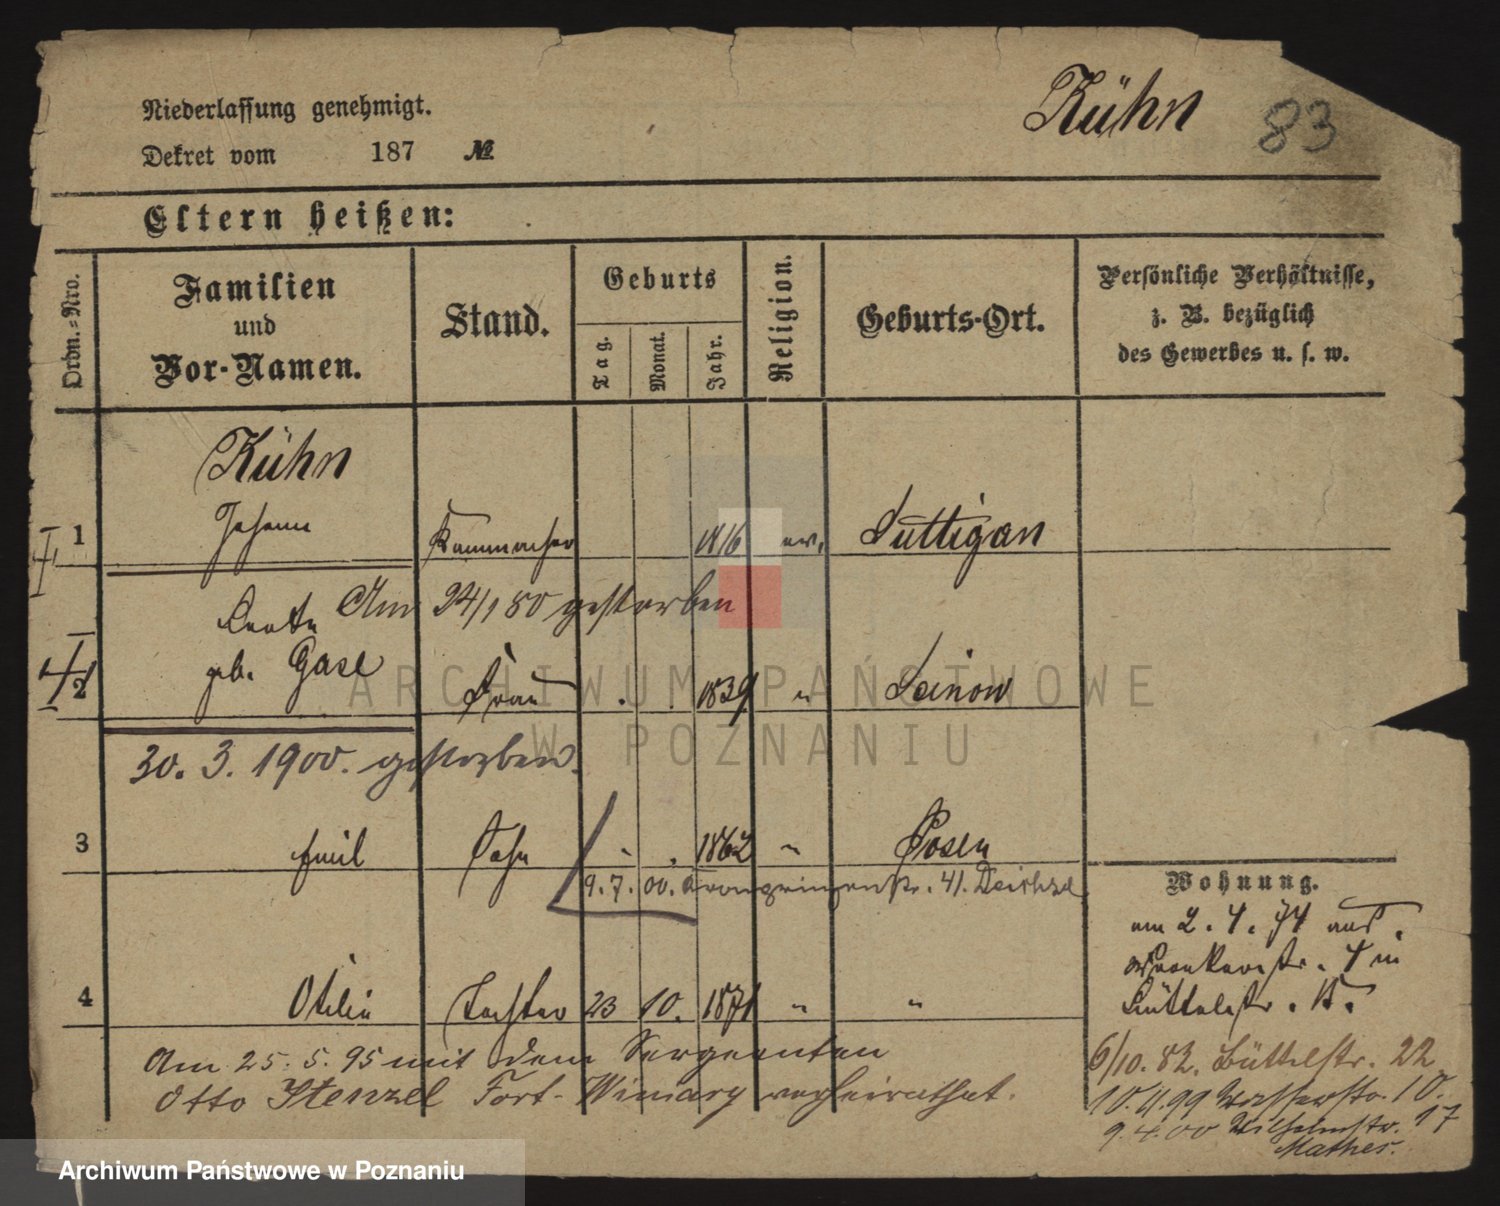 Niederlassung genehmigt.
Kühn 83
Dekret vom 187 №
Eltern heißen:
Ordn.=Nro.
Familien und Vor-Namen.
Stand.
Geburts
Tag.
Monat.
Jahr.
Religion.
Geburts-Ort.
Persönliche Verhältnisse, z. B. bezüglich des Gewerbes u. s. w.
Kühn
1 Johann Kammmacher 1816 ev.
Am 24/1 80 gestorben
geb. Gase
2 Frau 1839 "
30. 3. 1900. gestorben.
3 Emil Sohn " " 1862 " Posen
9. 7. 00. Kronprinzenstr. 41.
4 Otilie Tochter 23 10. 1871 " "
Am 25. 5. 95 mit dem Sergeanten
Otto Stenzel Fort-Winiary verheirathet.
Wohnung.
am 2. 4. 74 aus
4 in
Büttelstr.
6/10. 82. Büttelstr. 22
Wasserstr. 10.
9. 4. 00 Wilhelmstr. 17
Mathes.
ARCHIWUM PAŃSTWOWE
W POZNANIU
Archiwum Państwowe w Poznaniu